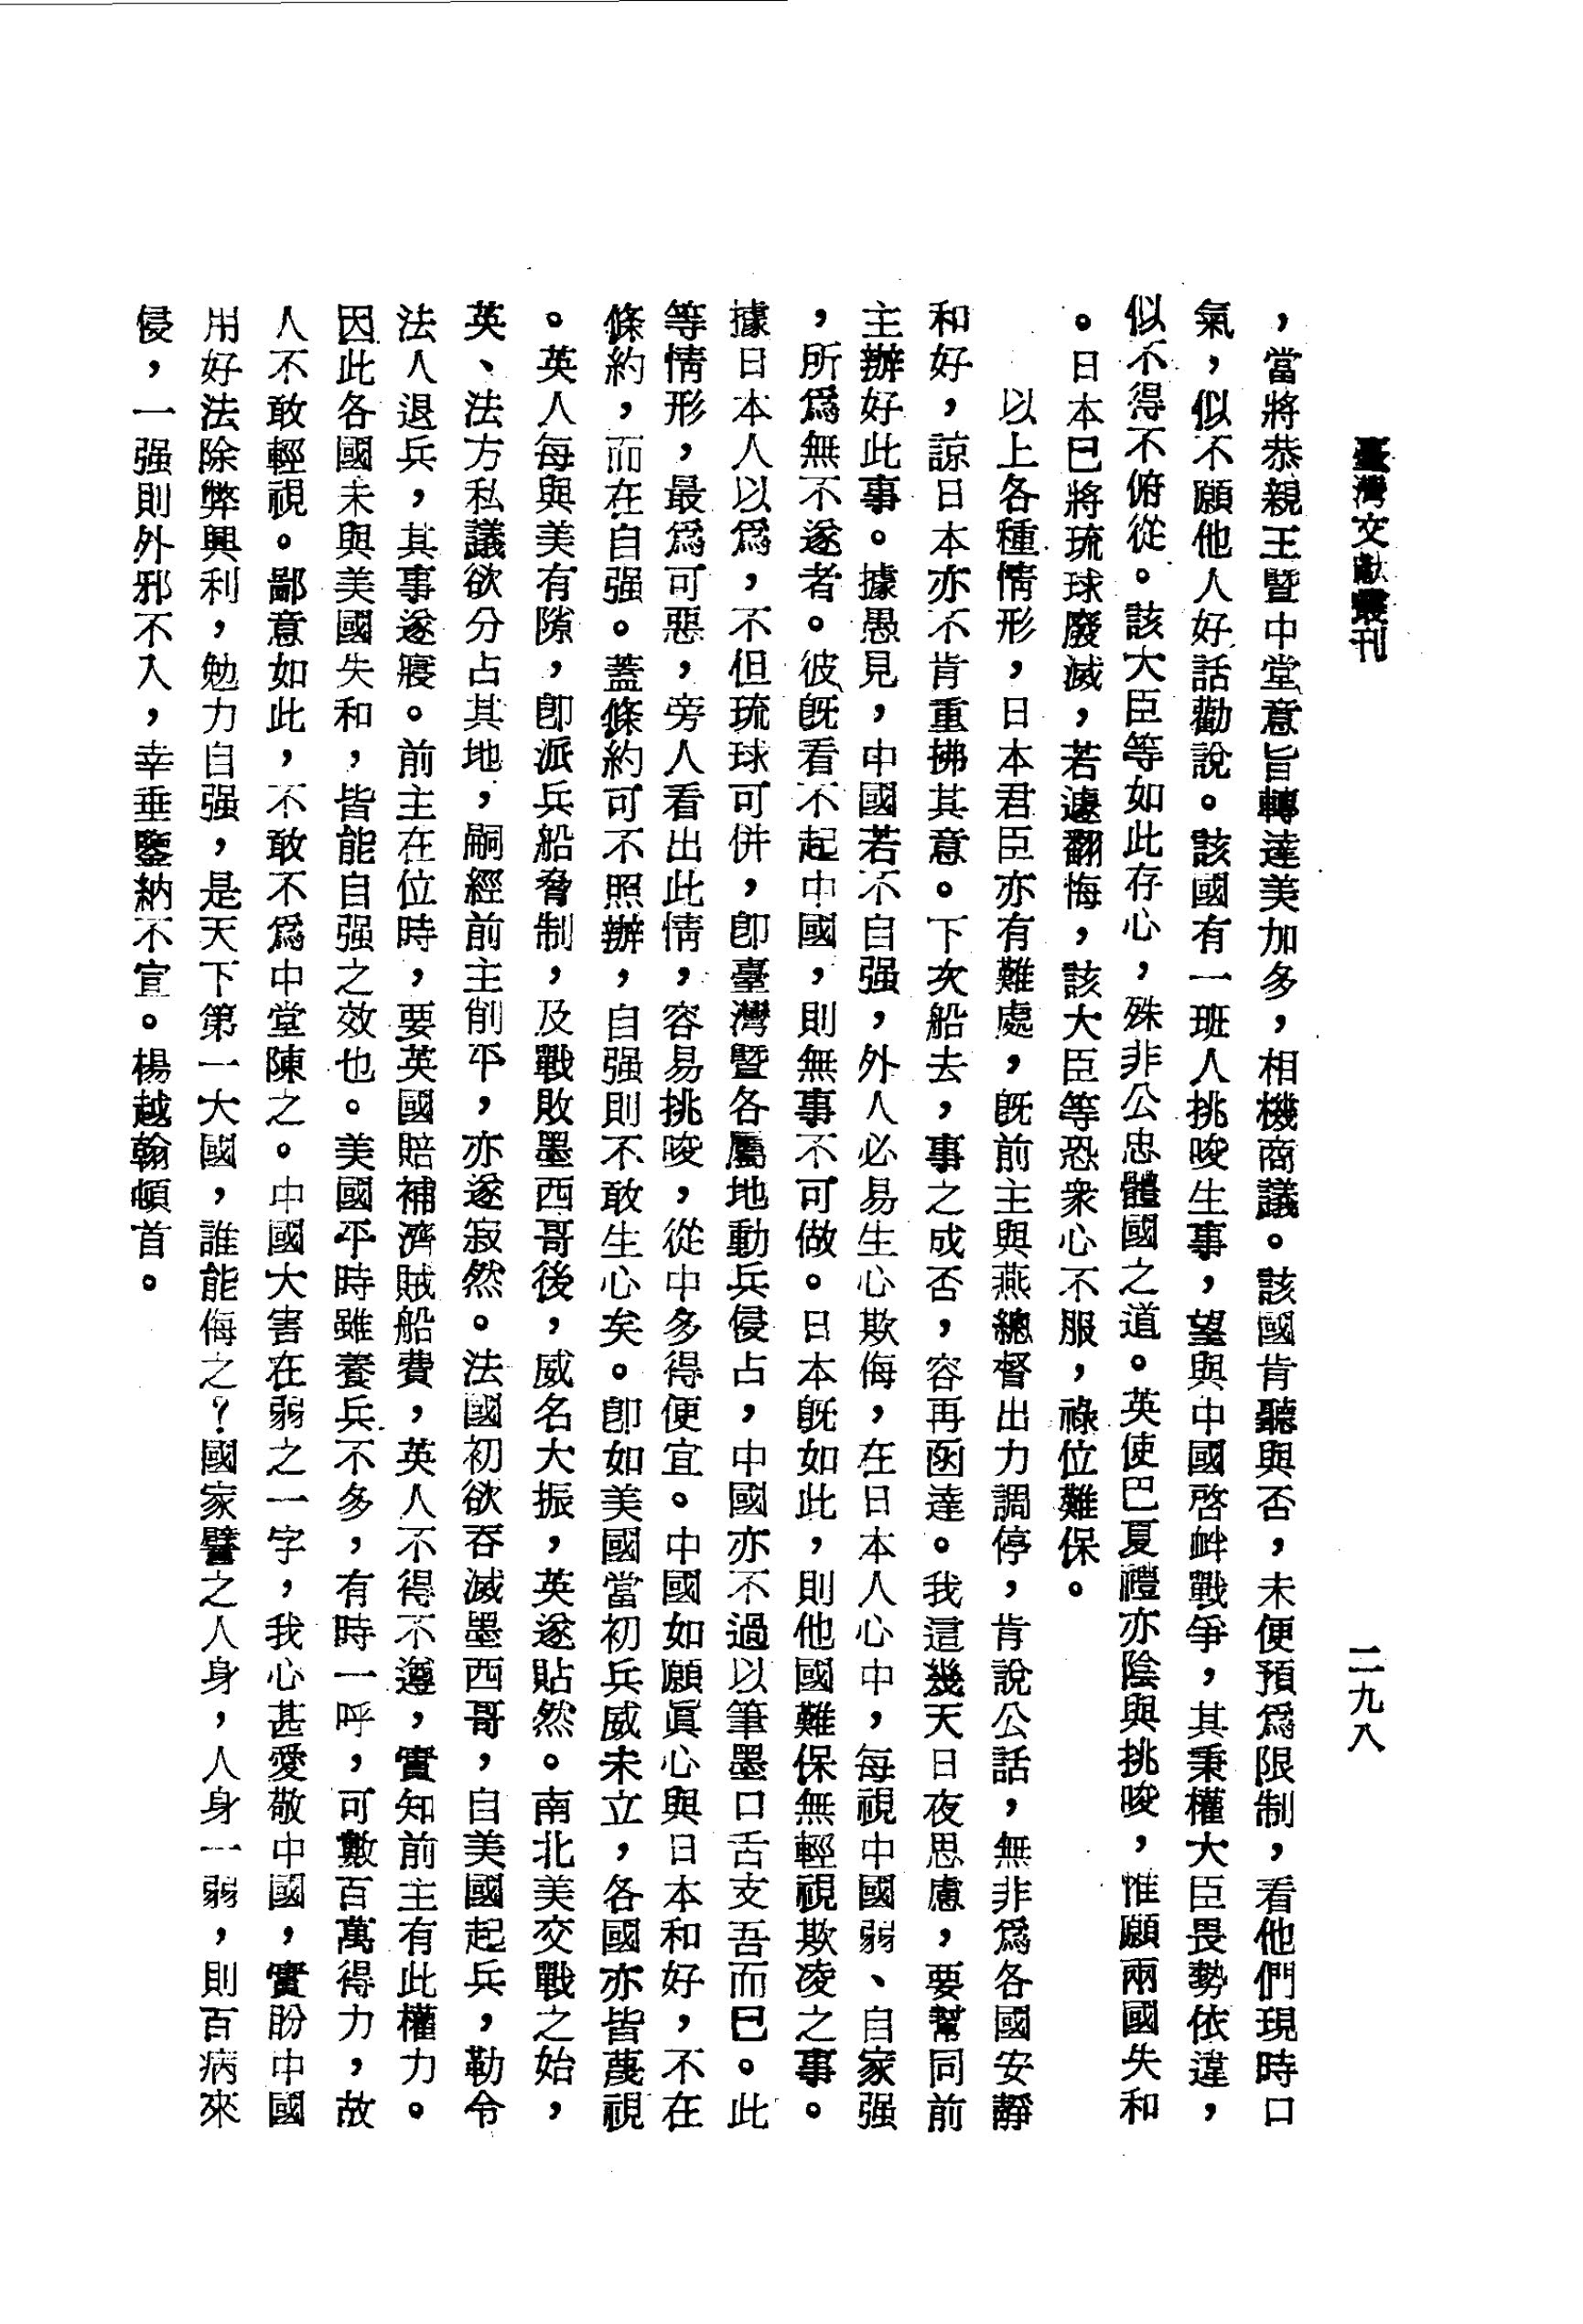 臺灣文獻叢刊
二九八
，當將恭親王暨中堂意旨轉達美加多，相機商議。該國肯聽與否，未便預爲限制，看他們現時口
氣，似不願他人好話勸說。該國有一班人挑唆生事，望與中國啓衅戰爭，其秉權大臣畏勢依違，
似不得不俯從。該大臣等如此存心，殊非公忠體國之道。英使巴夏禮亦陰與挑唆，惟願兩國失和
。日本已將琉球廢滅，若遽翻悔，該大臣等恐衆心不服，祿位難保。
以上各種情形，日本君臣亦有難處，旣前主與燕總督出力調停，肯說公話，無非爲各國安靜
和好，諒日本亦不肯重拂其意。下次船去，事之成否，容再函達。我這幾天日夜思慮，要幫同前
主辦好此事。據愚見，中國若不自强，外人必易生心欺侮，在日本人心中，每視中國弱、自家强
，所爲無不遂者。彼旣看不起中國，則無事不可做。日本旣如此，則他國難保無輕視欺凌之事。
據日本人以爲，不但琉球可併，卽臺灣暨各屬地動兵侵占，中國亦不過以筆墨口舌支吾而已。此
等情形，最爲可惡，旁人看出此情，容易挑唆，從中多得便宜。中國如願眞心與日本和好，不在
條約，而在自强。蓋條約可不照辦，自强則不敢生心矣。卽如美國當初兵威未立，各國亦皆蔑視
。英人每與美有隙，卽派兵船脅制，及戰敗墨西哥後，威名大振，英遂貼然。南北美交戰之始，
英、法方私議欲分占其地，嗣經前主削平，亦遂寂然。法國初欲吞滅墨西哥，自美國起兵，勒令
法人退兵，其事遂寢。前主在位時，要英國賠補濟賊船費，英人不得不遵，實知前主有此權力。
因此各國未與美國失和，皆能自强之效也。美國平時雖養兵不多，有時一呼，可數百萬得力，故
人不敢輕視。鄙意如此，不敢不爲中堂陳之。中國大害在弱之一字，我心甚愛敬中國，實盼中國
用好法除弊興利，勉力自强，是天下第一大國，誰能侮之？國家譬之人身，人身一弱，則百病來
侵，一强則外邪不入，幸垂鑒納不宣。楊越翰頓首。